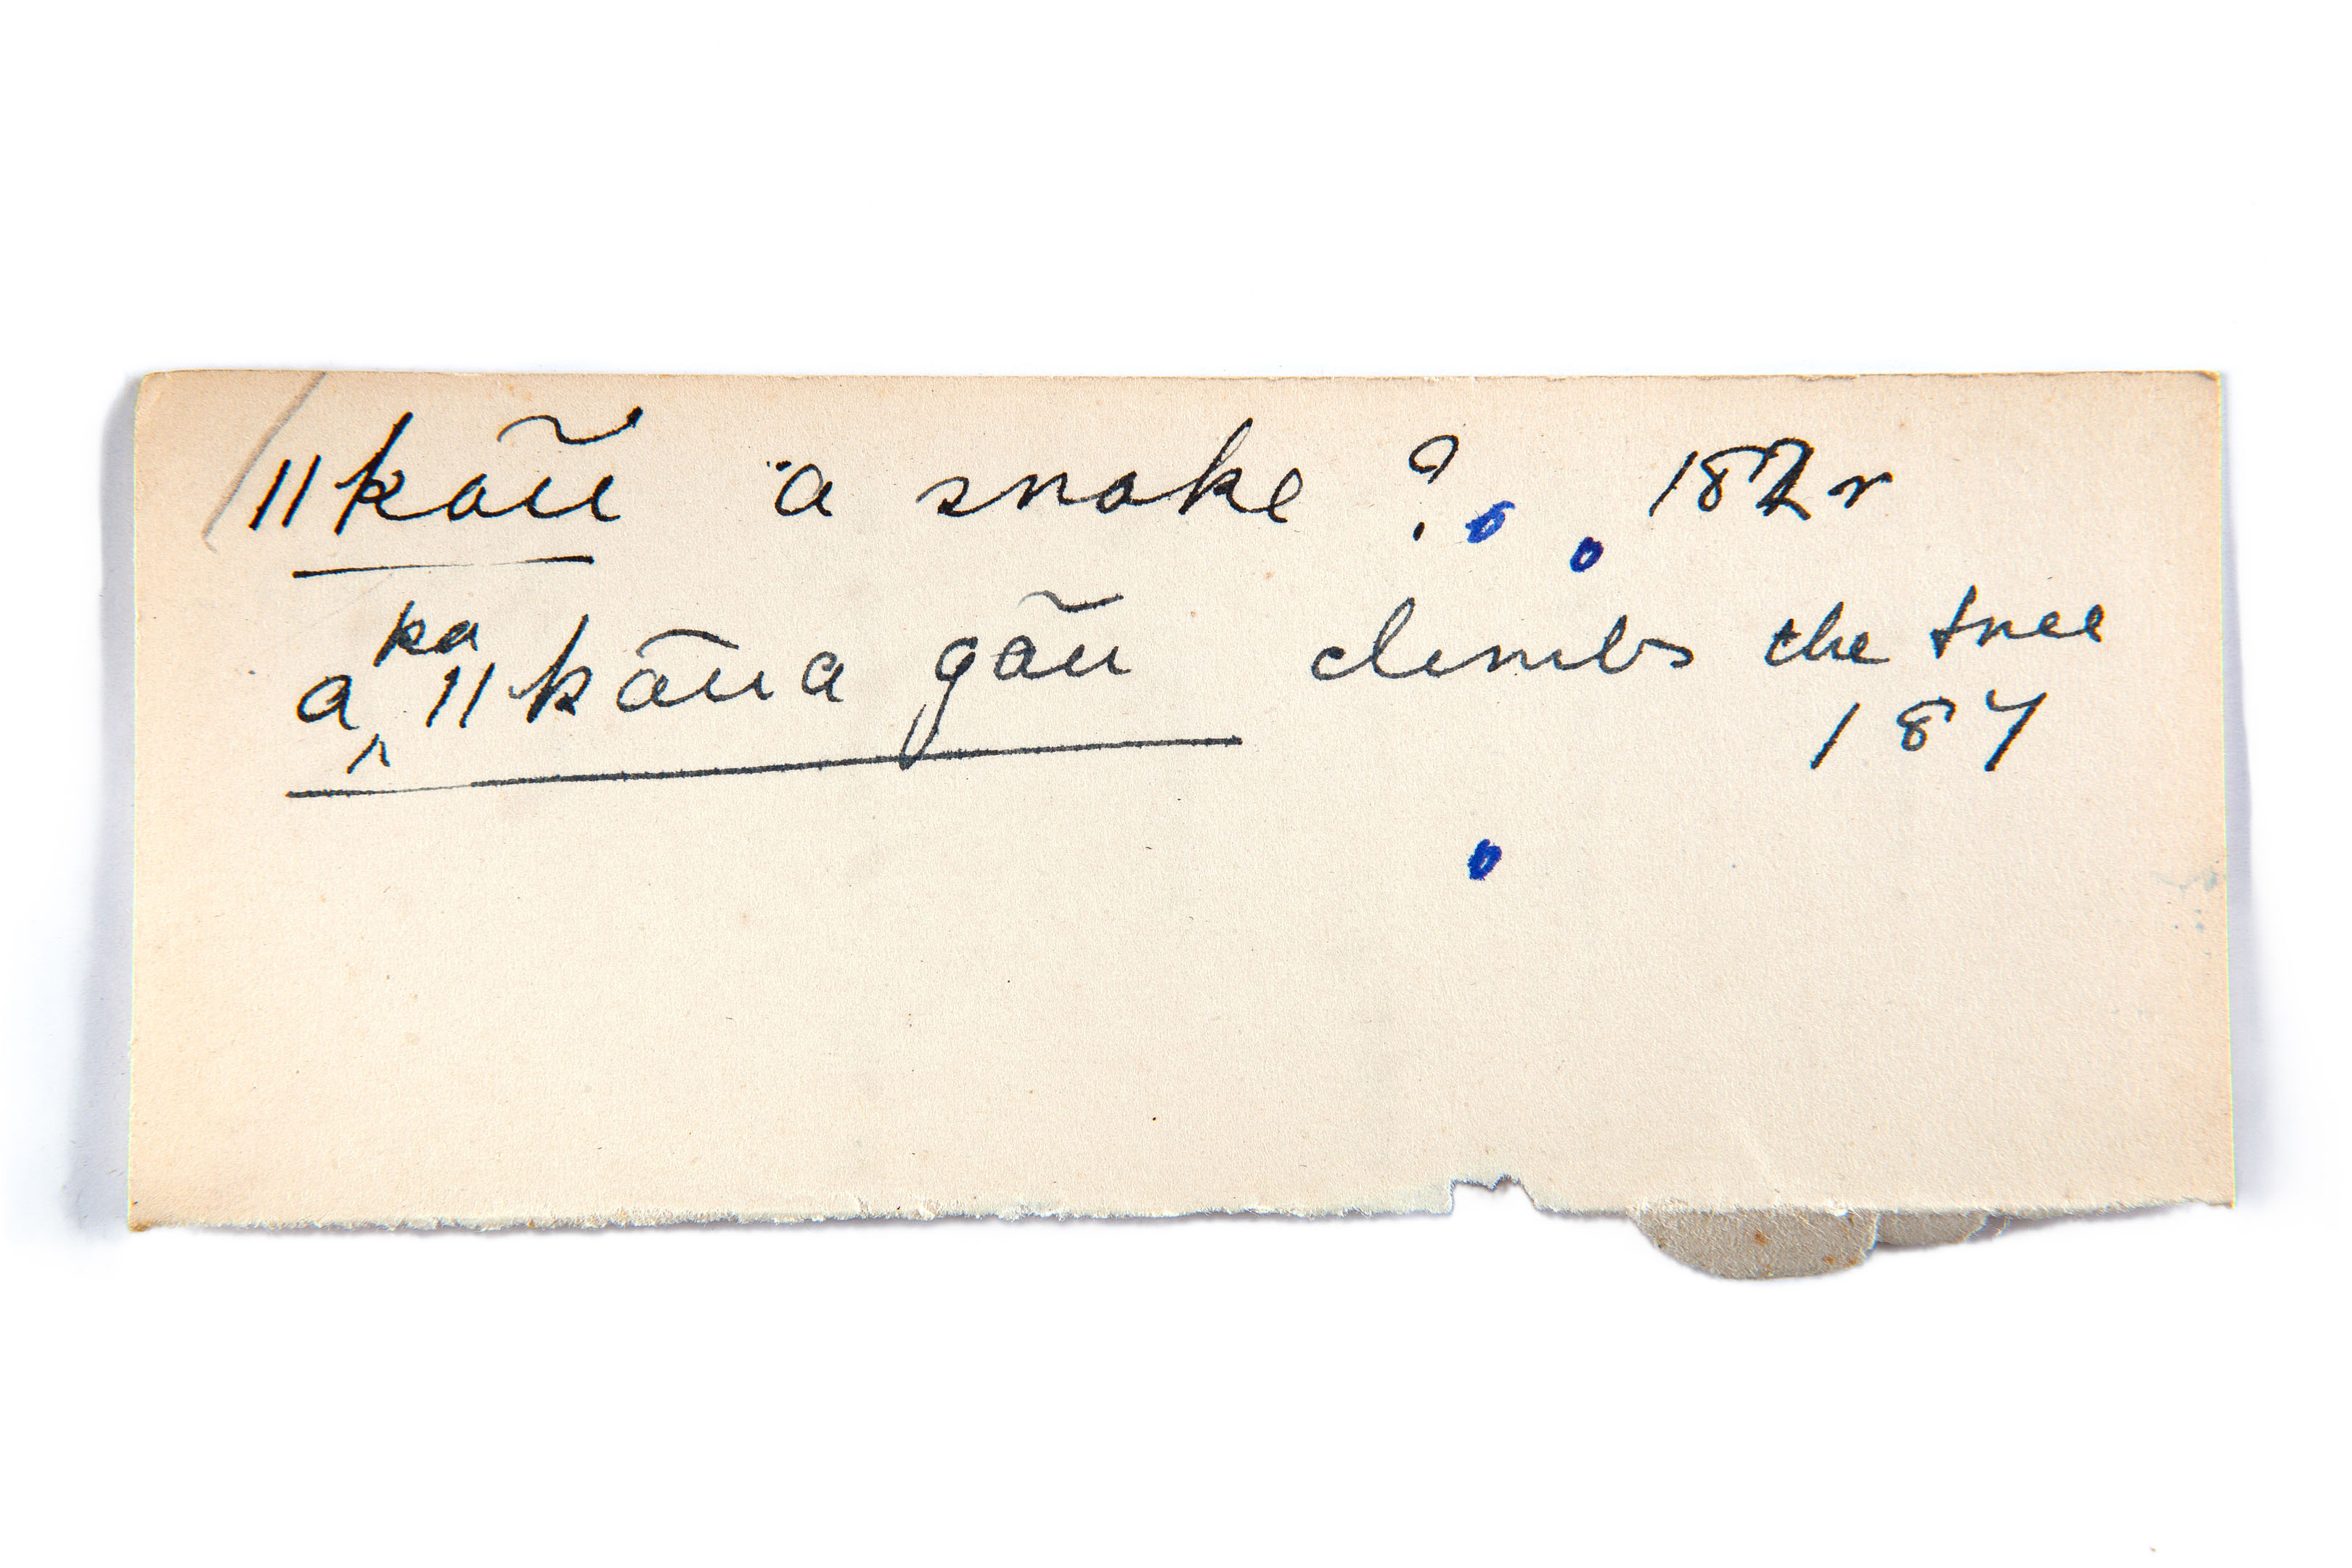 ǁkãũ a snake ? 182r
a ka ǁkāũa gãũ climbs the tree
187